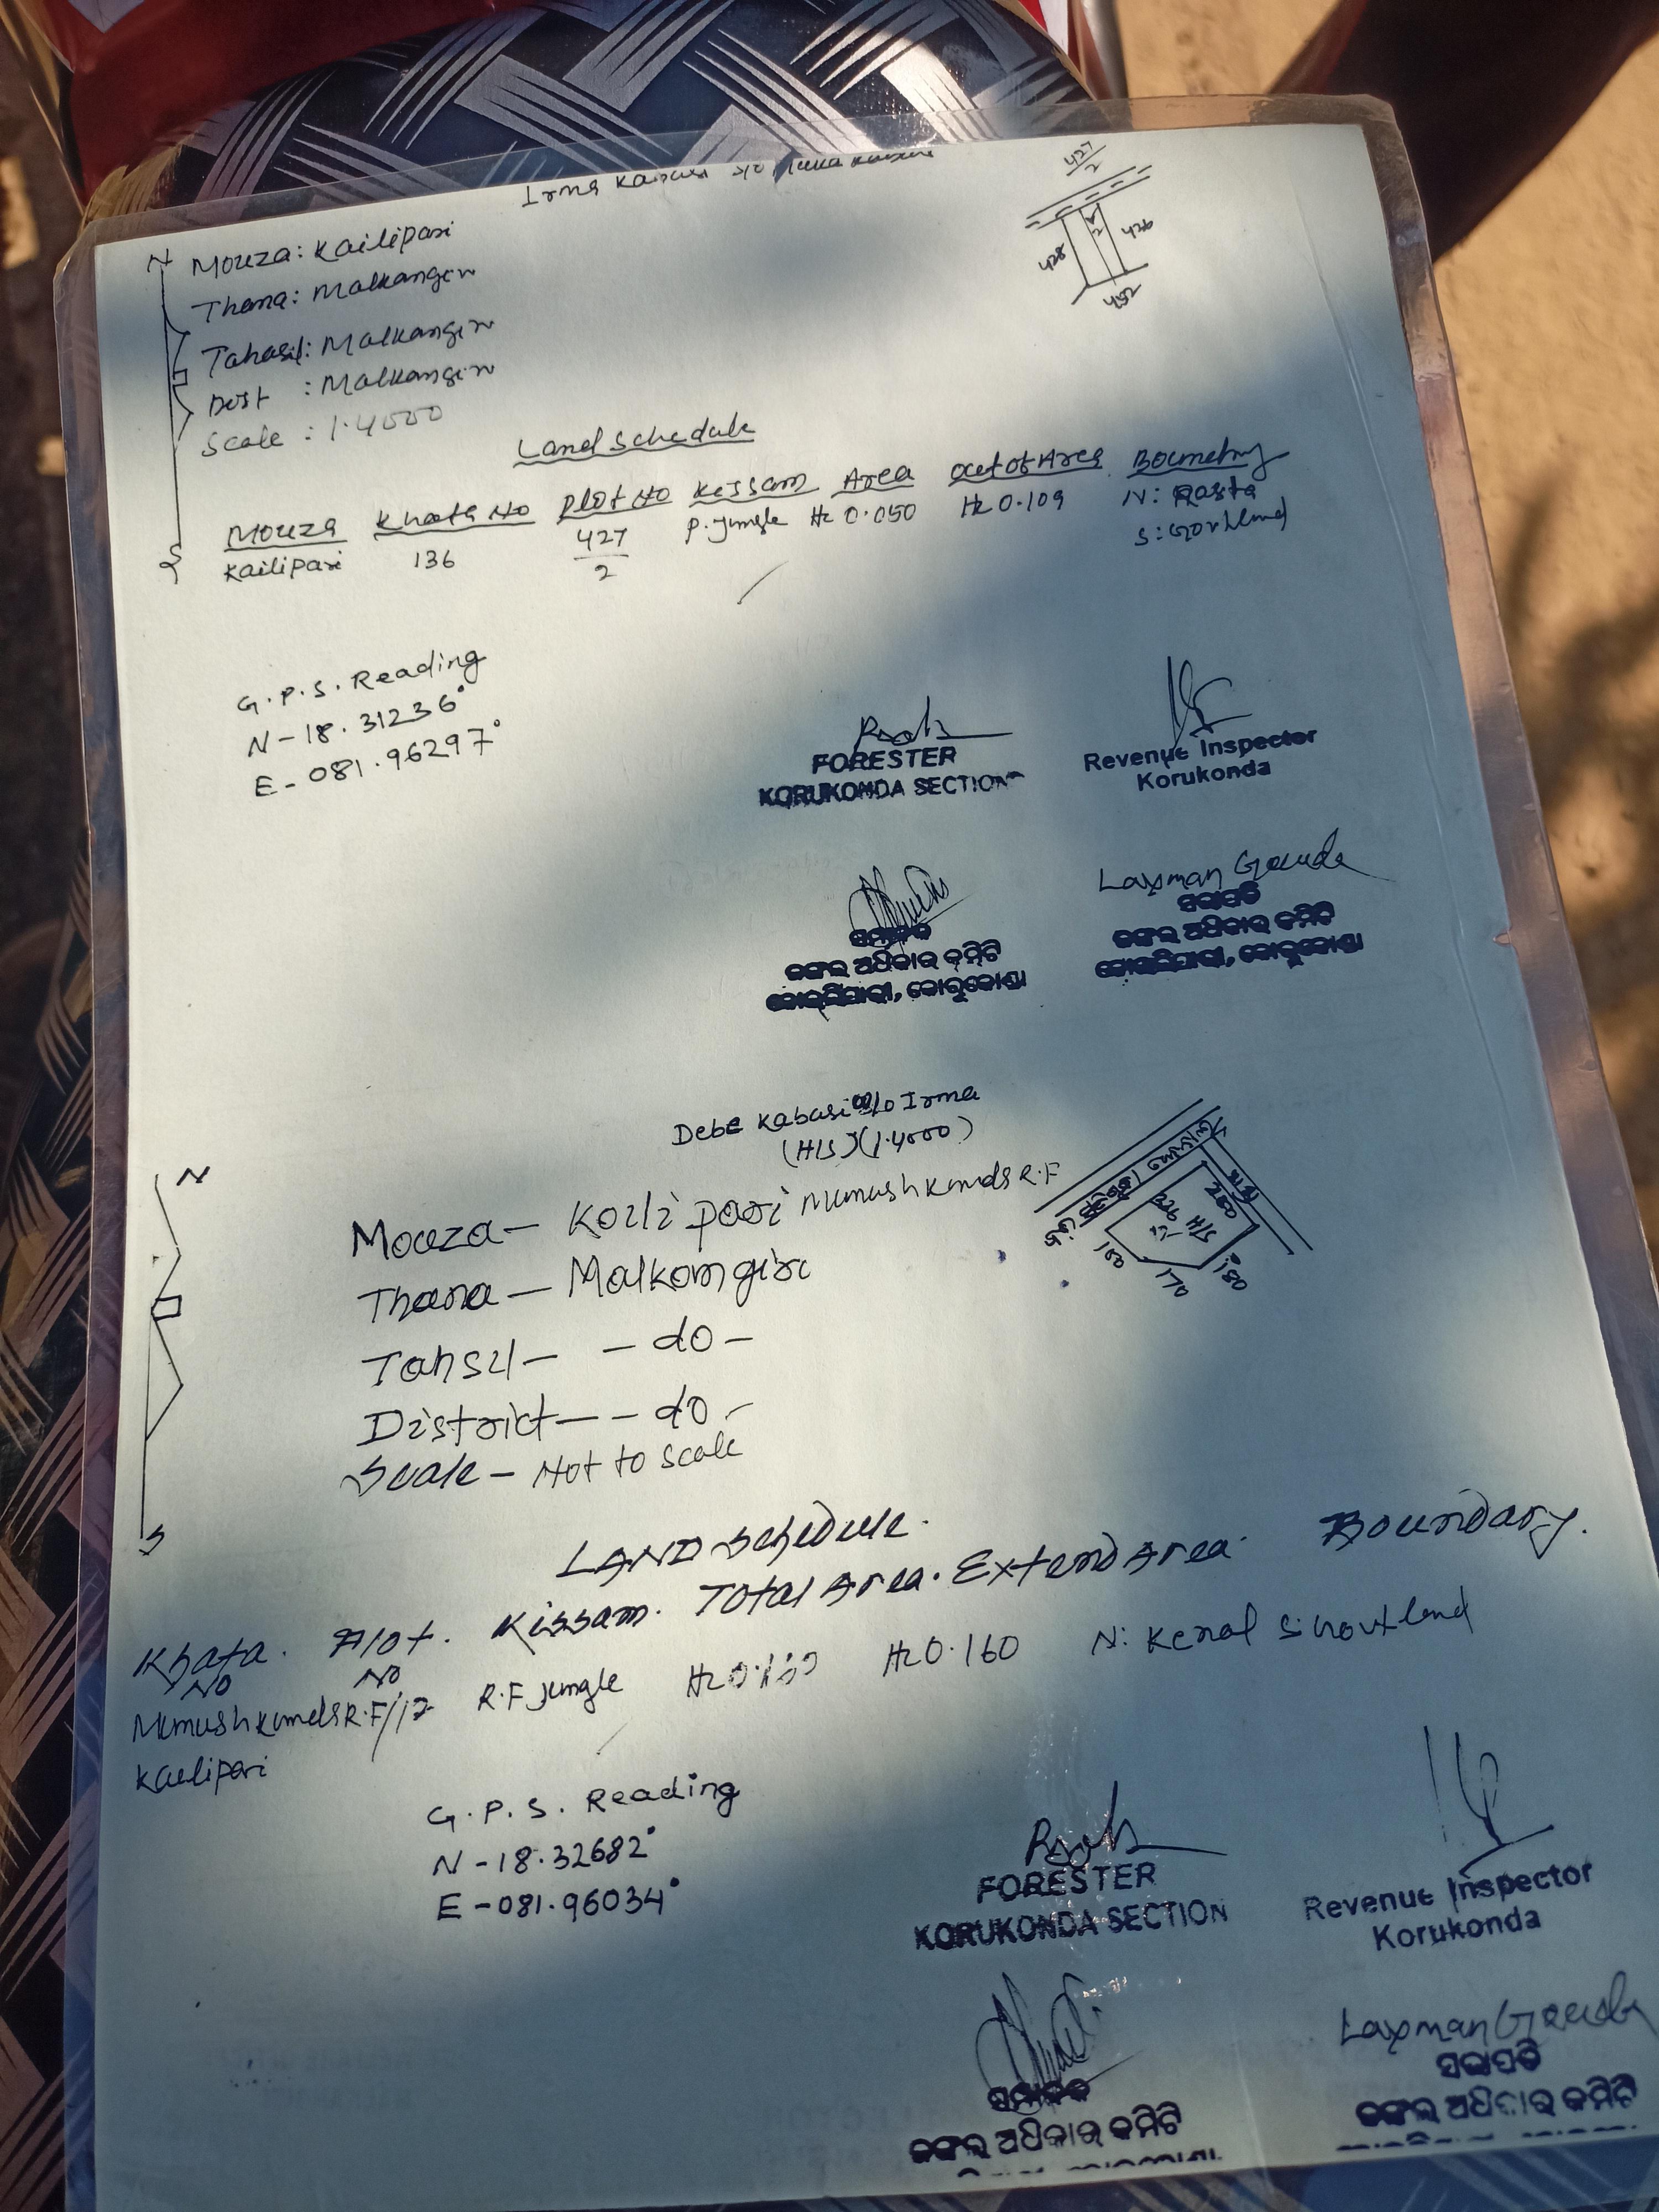 Irma Kabasi S/o
427/2
428
426
452
N
Mouza: Kailipari
Thana: Malkangiri
Tahasil: Malkangiri
Dist : Malkangiri
Scale : 1:4000
S
Land Schedule
Mouza Khata No Plot No Kissam Area out of Area Boundry
Kailipari 136 427/2 P. Jungle Hc 0.050 Hc 0.109 N: Rasta
S: Govt land
G.P.S. Reading
N-18.31236°
E-081.96297°
FORESTER
KORUKONDA SECTION
Revenue Inspector
Korukonda
Laxman Gouda
ସମ୍ପାଦକ
ଜଙ୍ଗଲ ଅଧିକାର କମିଟି
ସଭାପତି
ଜଙ୍ଗଲ ଅଧିକାର କମିଟି
Debe Kabasi w/o Irma
(H/S)(1:4000)
N
Mouza- Koilipari R.F
Thana- Malkangiri
Tahsil- -do-
District- -do-
Scale- Not to scale
S
H/S
170
180
LAND Schedule.
Khata No. Plot No. Kissam. Total Area. Extend Area. Boundary.
R.F/12 R.F jungle Hc 0.160 N: Kenal S: Govt land
Kailipari
G.P.S. Reading
N-18.32682°
E-081.96034°
FORESTER
KORUKONDA SECTION
Revenue Inspector
Korukonda
Laxman Gouda
ସମ୍ପାଦକ
ଜଙ୍ଗଲ ଅଧିକାର କମିଟି
ସଭାପତି
ଜଙ୍ଗଲ ଅଧିକାର କମିଟି